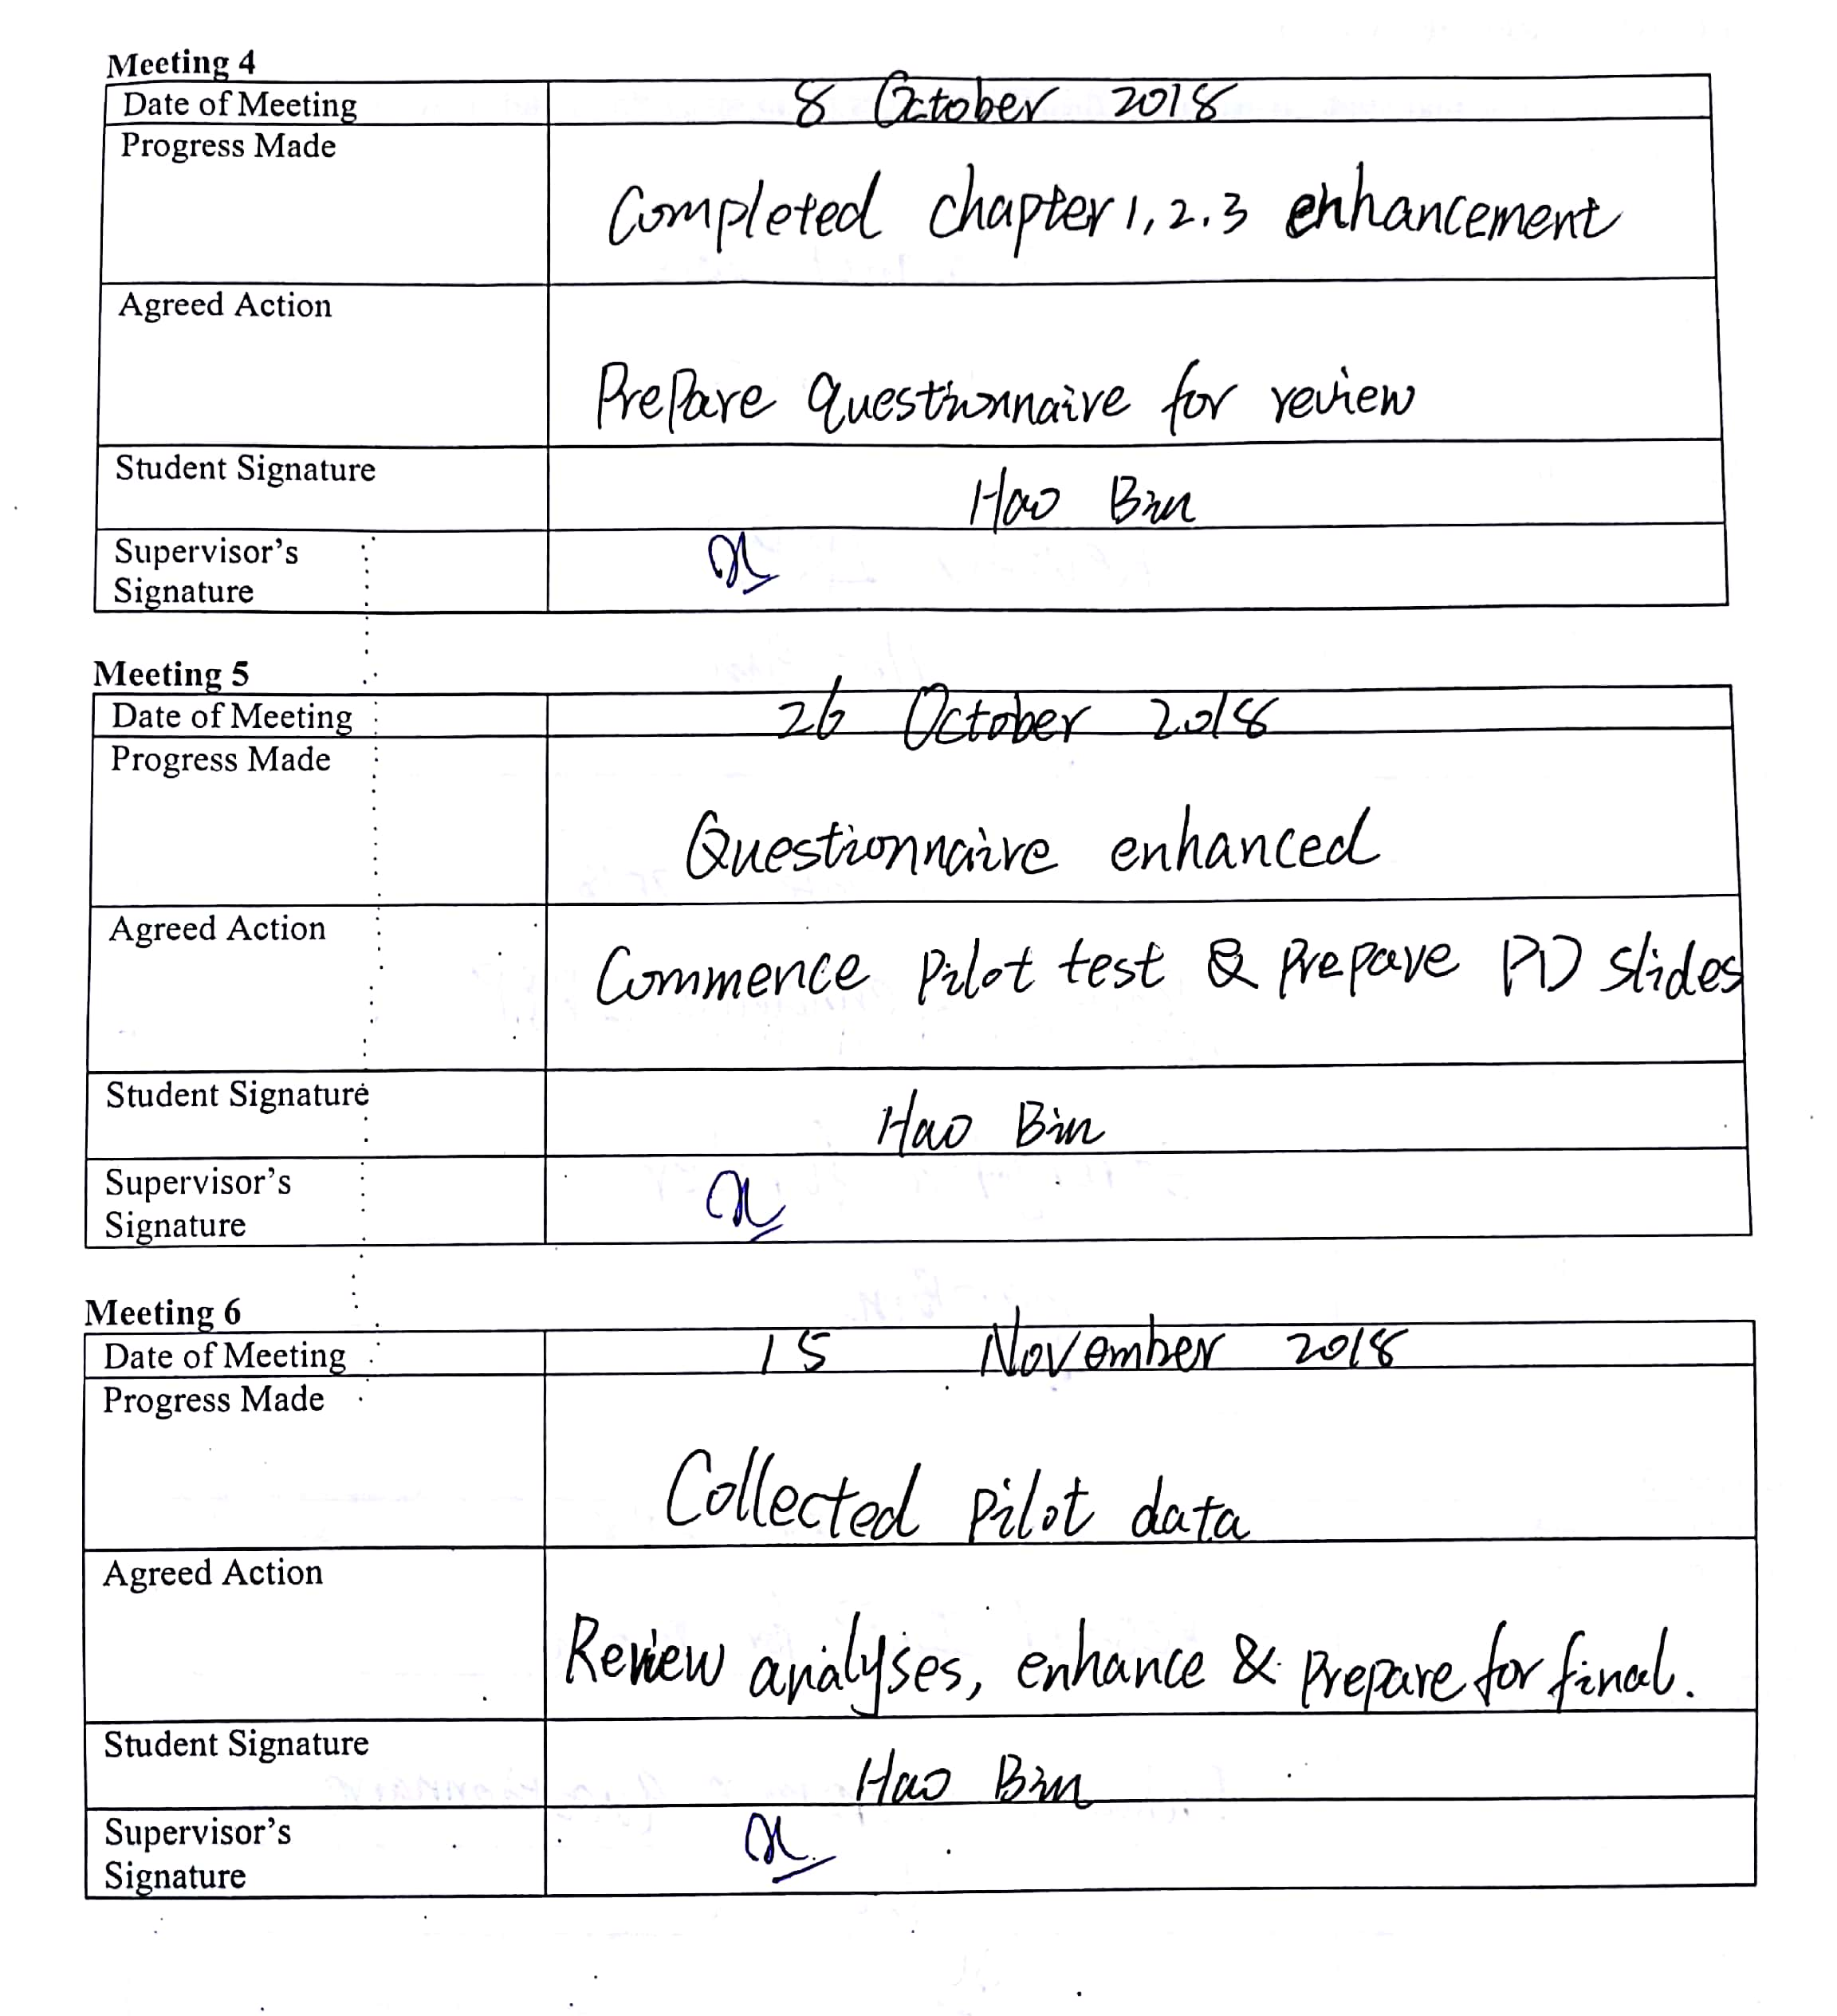 Meeting 4
Date of Meeting 8 October 2018
Progress Made
Completed chapter 1, 2.3 enhancement
Agreed Action
Prepare questionnaire for review
Student Signature
Hao Bin
Supervisor's
Signature
Meeting 5
Date of Meeting 26 October 2018
Progress Made
Questionnaire enhanced
Agreed Action
Commence Pilot test & Prepare PD slides
Student Signature
Hao Bin
Supervisor's
Signature
Meeting 6
Date of Meeting 15 November 2018
Progress Made
Collected Pilot data
Agreed Action
Review analyses, enhance & Prepare for final.
Student Signature
Hao Bin
Supervisor's
Signature